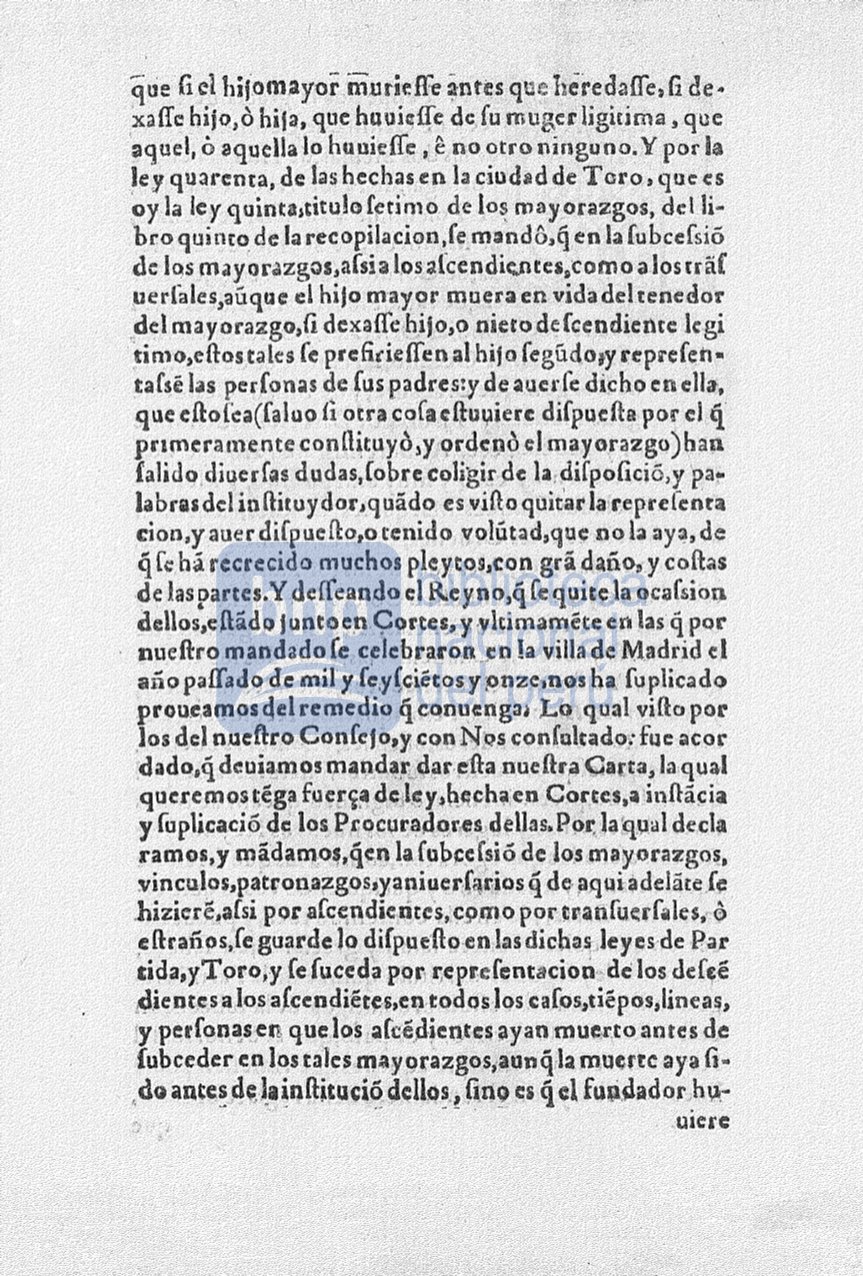 que ſi el hijo mayor murieſſe antes que heredaſſe, ſi de-
xaſſe hijo, ò hija, que huuieſſe de ſu muger ligitima, que
aquel, ò aquella lo huuieſſe, ê no otro ninguno. Y por la
ley quarenta, de las hechas en la ciudad de Toro, que es
oy la ley quinta, titulo ſetimo de los mayorazgos, del li-
bro quinto de la recopilacion, ſe mandô, q̃ en la ſubceſsiõ
de los mayorazgos, aſsi a los aſcendientes, como a los trãſ
uerſales, aũque el hijo mayor muera en vida del tenedor
del mayorazgo, ſi dexaſſe hijo, o nieto deſcendiente legi
timo, eſtos tales ſe prefirieſſen al hijo ſegũdo, y repreſen-
taſsẽ las perſonas de ſus padres: y de auerſe dicho en ella,
que eſto ſea (ſaluo ſi otra coſa eſtuuiere diſpueſta por el q̃
primeramente conſtituyò, y ordenò el mayorazgo) han
ſalido diuerſas dudas, ſobre coligir de la diſpoſiciõ, y pa-
labras del inſtituydor, quãdo es viſto quitar la repreſenta
cion, y auer diſpueſto, o tenido volũtad, que no la aya, de
q̃ ſe hã recrecido muchos pleytos, con grã daño, y coſtas
de las partes. Y deſſeando el Reyno, q̃ ſe quite la ocaſsion
dellos, eſtãdo junto en Cortes, y vltimamẽte en las q̃ por
nueſtro mandado ſe celebraron en la villa de Madrid el
año paſſado de mil y ſeyſciẽtos y onze, nos ha ſuplicado
proueamos del remedio q̃ conuenga. Lo qual viſto por
los del nueſtro Conſejo, y con Nos conſultado: fue acor
dado, q̃ deuiamos mandar dar eſta nueſtra Carta, la qual
queremos tẽga fuerça de ley, hecha en Cortes, a inſtãcia
y ſuplicaciõ de los Procuradores dellas. Por la qual decla
ramos, y mãdamos, q̃ en la ſubceſsiõ de los mayorazgos,
vinculos, patronazgos, y aniuerſarios q̃ de aqui adelãte ſe
hizierẽ, aſsi por aſcendientes, como por tranſuerſales, ò
eſtraños, ſe guarde lo diſpueſto en las dichas leyes de Par
tida, y Toro, y ſe ſuceda por repreſentacion de los deſcẽ
dientes a los aſcendiẽtes, en todos los caſos, tiẽpos, lineas,
y perſonas en que los aſcẽdientes ayan muerto antes de
ſubceder en los tales mayorazgos, aunq̃ la muerte aya ſi-
do antes de la inſtituciõ dellos, ſino es q̃ el fundador hu-
uiere
bnp biblioteca
nacional
del perú